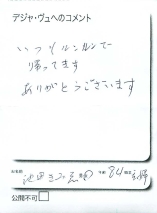 デジャ・ヴュへのコメント
いつもルンルンで
帰ってます
ありがとうございます
お名前
年齢 84 歳
公開不可